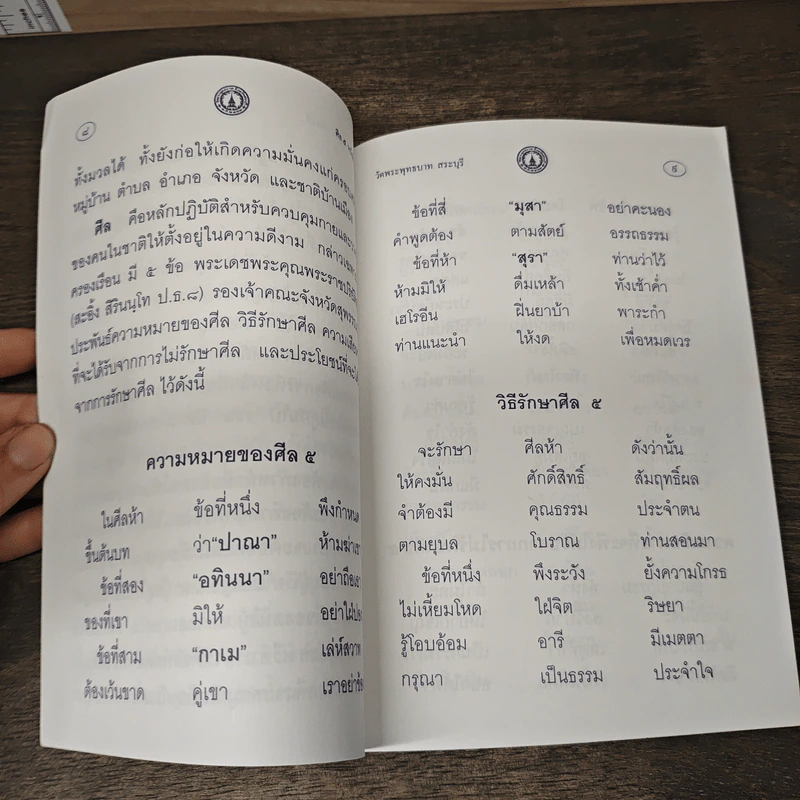 ๘
ทั้งมวลได้ ทั้งยังก่อให้เกิดความมั่นคงแก่
หมู่บ้าน ตำบล อำเภอ จังหวัด และชาติบ้านเมือง
ศีล คือหลักปฏิบัติสำหรับควบคุมกายและ
ของคนในชาติให้ตั้งอยู่ในความดีงาม
ครองเรือน มี ๕ ข้อ พระเดชพระคุณ
(สะอิ้ง สิรินนฺโท ป.ธ.๘) รองเจ้าคณะจังหวัด
ประพันธ์ความหมายของศีล วิธีรักษาศีล
ที่จะได้รับจากการไม่รักษาศีล และประโยชน์ที่จะ
จากการรักษาศีล ไว้ดังนี้
ความหมายของศีล ๕
ในศีลห้า ข้อที่หนึ่ง พึงกำหนด
ขึ้นต้นบท ว่า“ปาณา” ห้ามฆ่า
ข้อที่สอง “อทินนา” อย่าถือเอา
ของที่เขา มิให้ อย่าใฝ่
ข้อที่สาม “กาเม” เล่ห์สวาท
ต้องเว้นขาด คู่เขา เราอย่า
วัดพระพุทธบาท สระบุรี
๙
ข้อที่สี่ “มุสา” อย่าคะนอง
คำพูดต้อง ตามสัตย์ อรรถธรรม
ข้อที่ห้า “สุรา” ท่านว่าไว้
ห้ามมิให้ ดื่มเหล้า ทั้งเช้าค่ำ
เฮโรอีน ฝิ่นยาบ้า พาระกำ
ท่านแนะนำ ให้งด เพื่อหมดเวร
วิธีรักษาศีล ๕
จะรักษา ศีลห้า ดังว่านั้น
ให้คงมั่น ศักดิ์สิทธิ์ สัมฤทธิ์ผล
จำต้องมี คุณธรรม ประจำตน
ตามยุบล โบราณ ท่านสอนมา
ข้อที่หนึ่ง พึงระวัง ยั้งความโกรธ
ไม่เหี้ยมโหด ใฝ่จิต ริษยา
รู้โอบอ้อม อารี มีเมตตา
กรุณา เป็นธรรม ประจำใจ